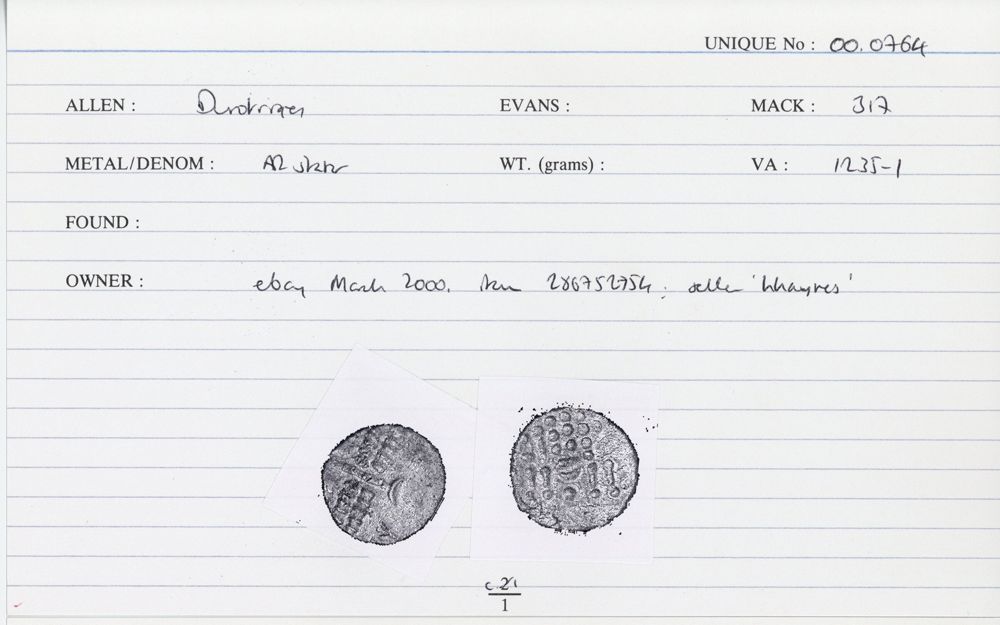 UNIQUE No : 00.0764
ALLEN : Durotriges EVANS : MACK : 317
METAL/DENOM : AR stater WT. (grams) : VA : 1235-1
FOUND :
OWNER : ebay March 2000. item 286752754; seller 'hhaynes'
c.2/1
1